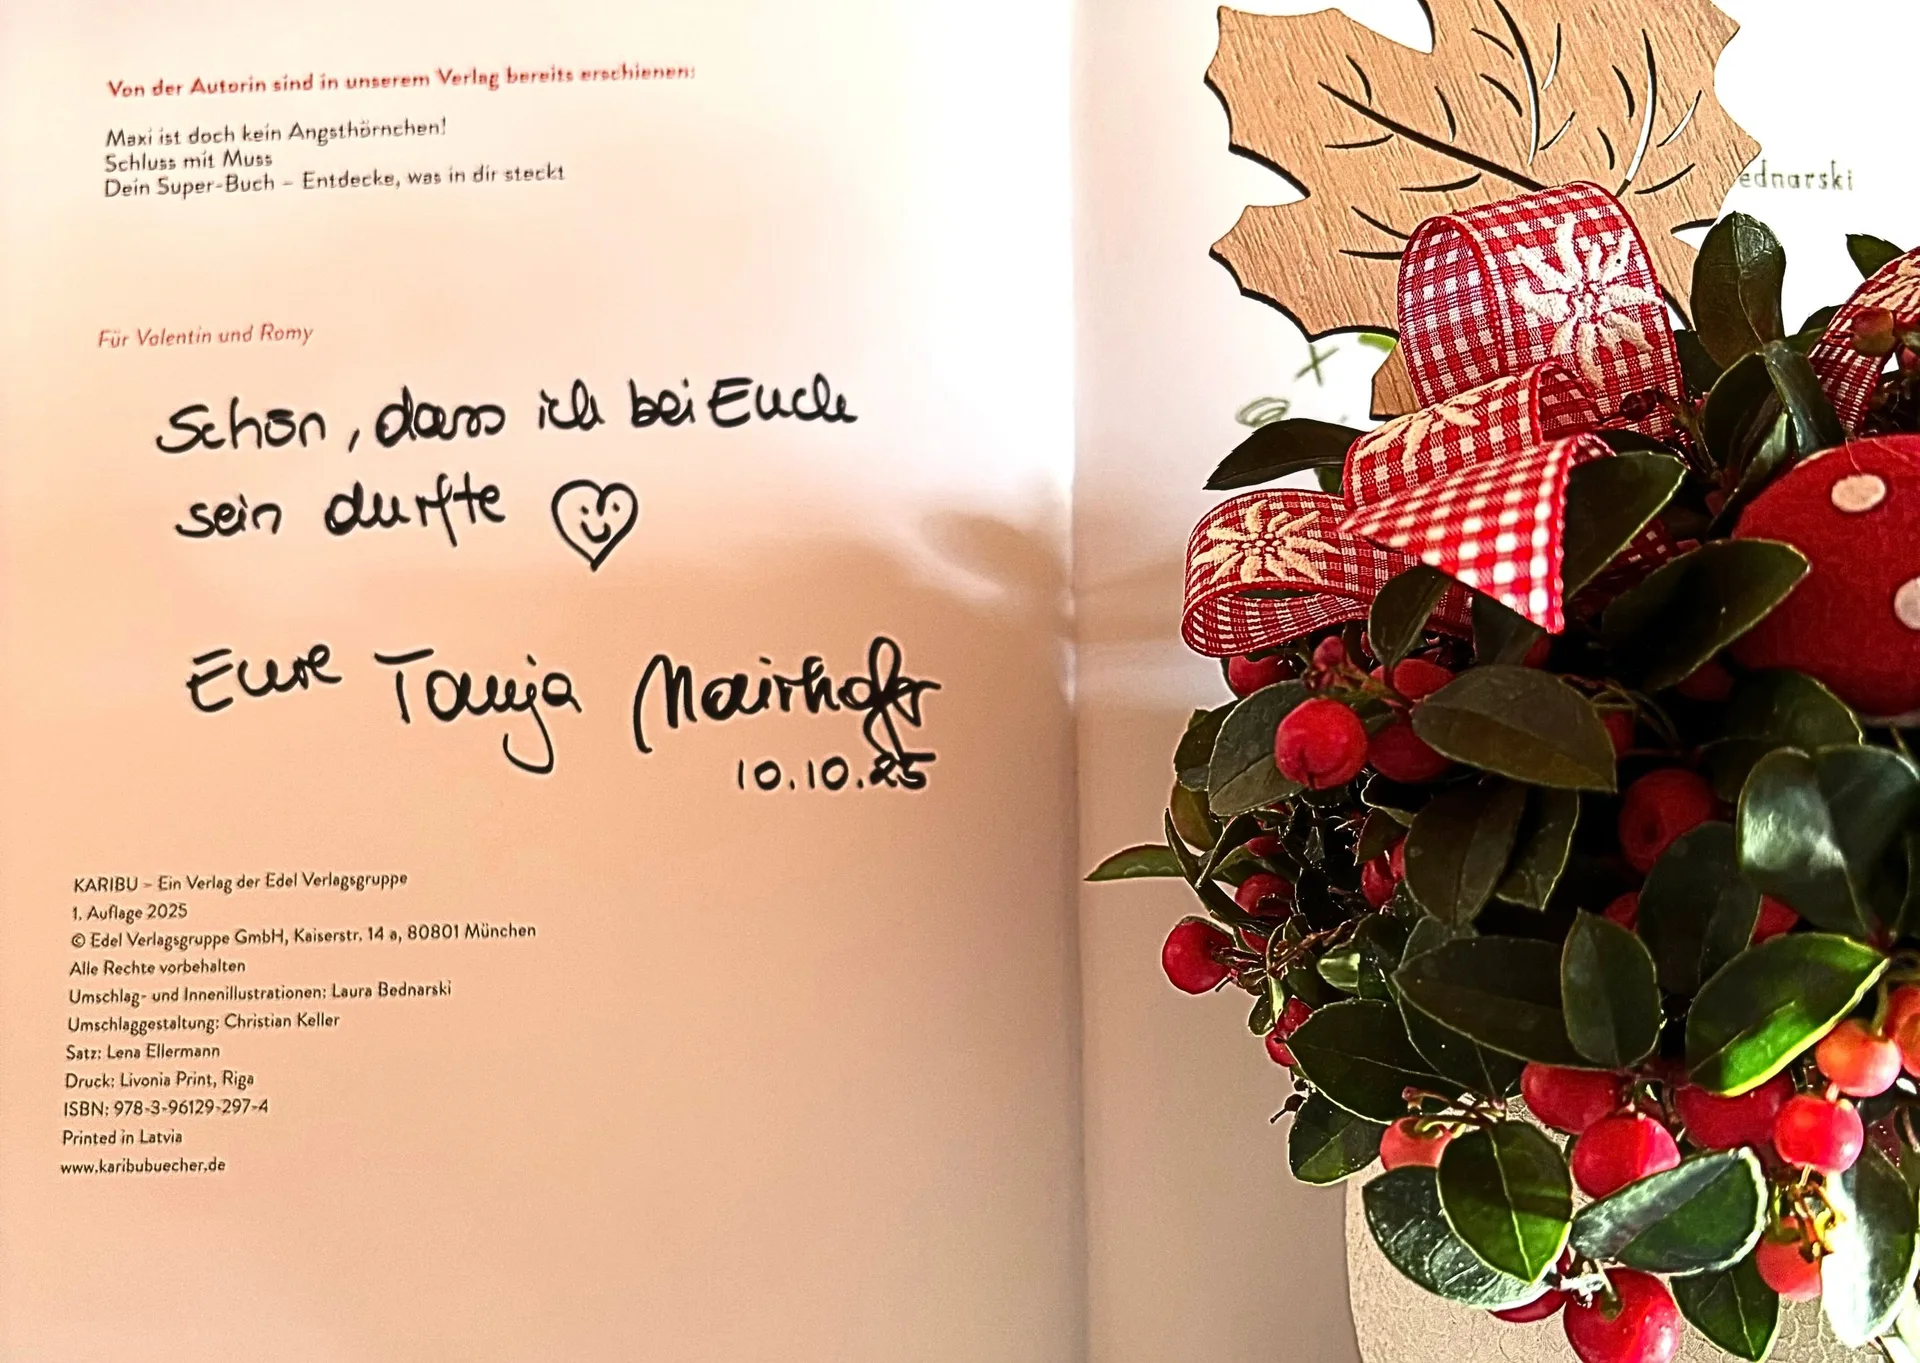 Von der Autorin sind in unserem Verlag bereits erschienen:
Maxi ist doch kein Angsthörnchen!
Schluss mit Muss
Dein Super-Buch – Entdecke, was in dir steckt
Für Valentin und Romy
Schön, dass ich bei Euch
sein durfte
Eure Tanja Mairhofer
10.10.25
KARIBU – Ein Verlag der Edel Verlagsgruppe
1. Auflage 2025
© Edel Verlagsgruppe GmbH, Kaiserstr. 14 a, 80801 München
Alle Rechte vorbehalten
Umschlag- und Innenillustrationen: Laura Bednarski
Umschlaggestaltung: Christian Keller
Satz: Lena Ellermann
Druck: Livonia Print, Riga
ISBN: 978-3-96129-297-4
Printed in Latvia
www.karibubuecher.de
ednarski